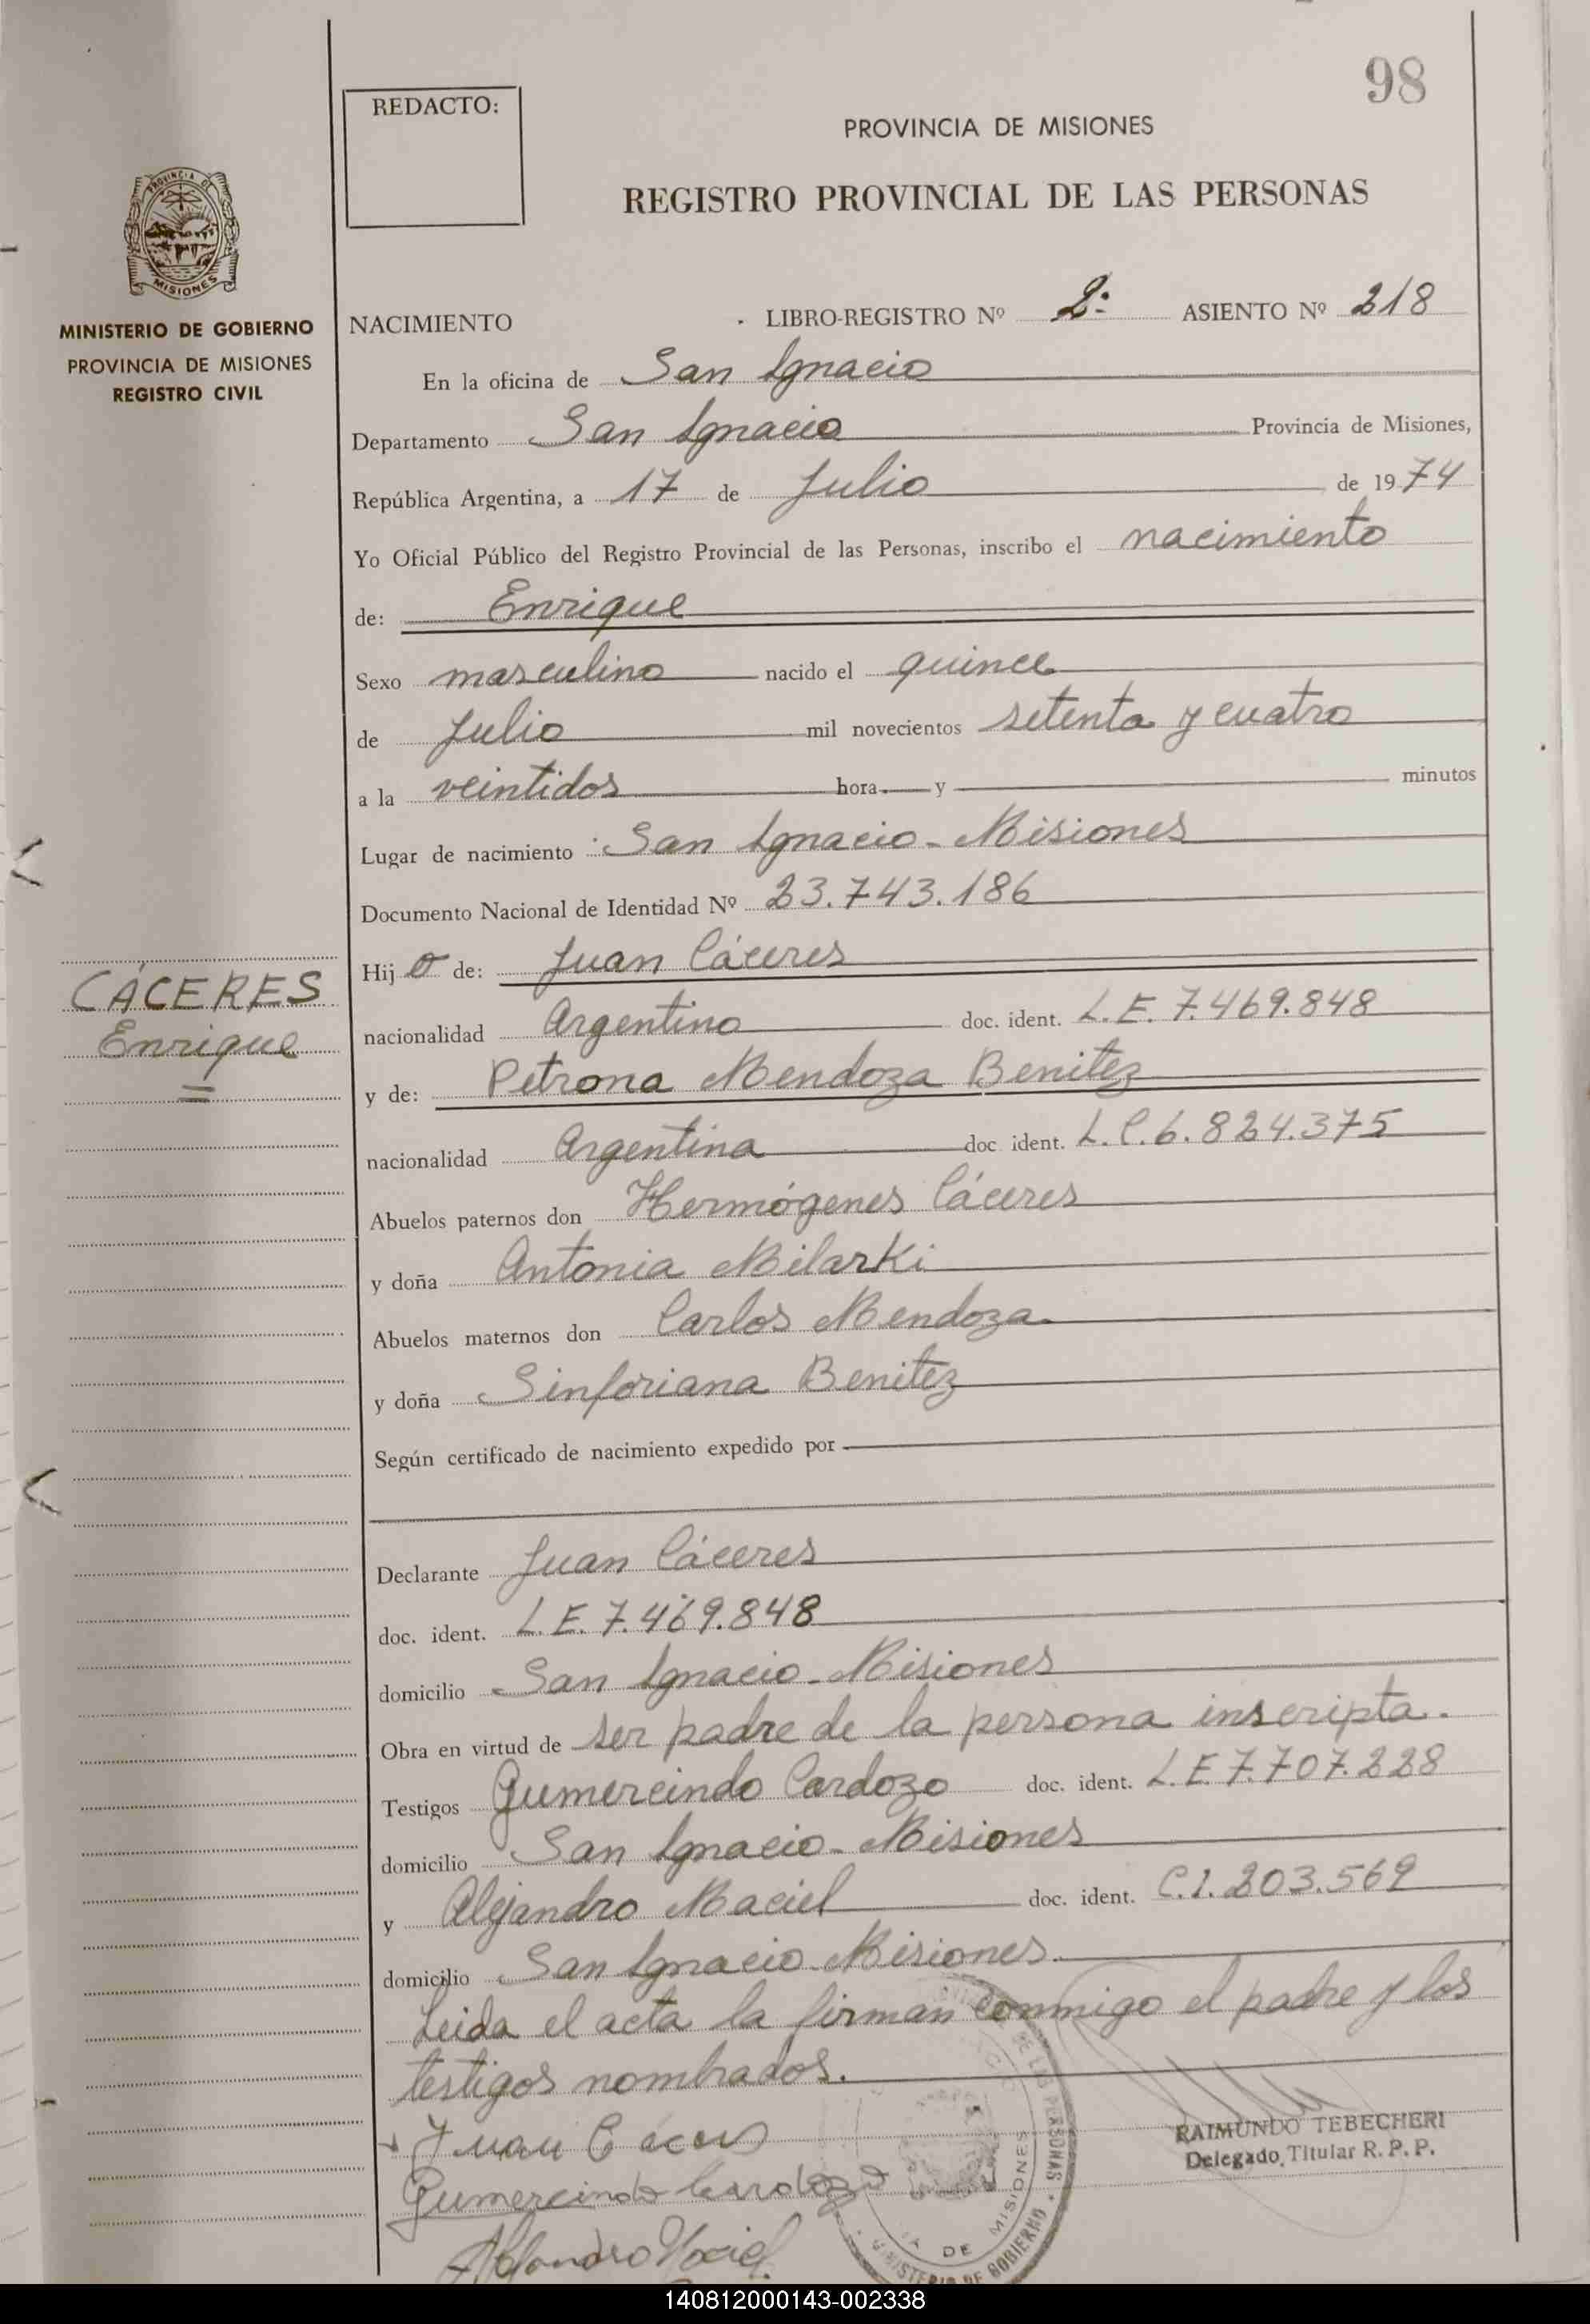 98
REDACTO:
PROVINCIA DE MISIONES
REGISTRO PROVINCIAL DE LAS PERSONAS
PROVINCIA DE
MISIONES
MINISTERIO DE GOBIERNO
PROVINCIA DE MISIONES
REGISTRO CIVIL
NACIMIENTO LIBRO-REGISTRO Nº 2: ASIENTO Nº 218
En la oficina de San Ignacio
Departamento San Ignacio Provincia de Misiones,
República Argentina, a 17 de Julio de 1974
Yo Oficial Público del Registro Provincial de las Personas, inscribo el nacimiento
de: Enrique
Sexo masculino nacido el quince
de Julio mil novecientos setenta y cuatro
a la veintidos hora y minutos
Lugar de nacimiento San Ignacio - Misiones
Documento Nacional de Identidad Nº 23.743.186
CÁCERES
Enrique
Hijo de: Juan Cáceres
nacionalidad Argentino doc. ident. L.E. 7.469.848
y de: Petrona Mendoza Benitez
nacionalidad Argentina doc ident. L.C. 6.824.375
Abuelos paternos don Hermógenes Cáceres
y doña Antonia Milarki
Abuelos maternos don Carlos Mendoza
y doña Sinforiana Benitez
Según certificado de nacimiento expedido por
Declarante Juan Cáceres
doc. ident. L.E. 7.469.848
domicilio San Ignacio - Misiones
Obra en virtud de ser padre de la persona inscripta.
Testigos Gumercindo Cardozo doc. ident. L.E. 7.707.228
domicilio San Ignacio - Misiones
y Alejandro Maciel doc. ident. C.I. 203.569
domicilio San Ignacio - Misiones.
Leida el acta la firman conmigo el padre y los
testigos nombrados.
Juan Cáceres
Gumercindo Cardozo
Alejandro Maciel
RAIMUNDO TEBECHERI
Delegado Titular R. P. P.
DE LAS PERSONAS
DE MISIONES
MINISTERIO DE GOBIERNO
140812000143-002338